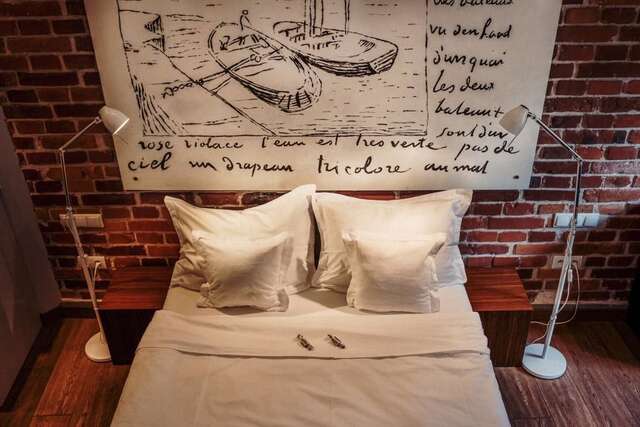 des bateaux
vu den haud
d'un quai
les deux
bateaux
sont d'un
rose violacé l'eau est tres verte pas de
ciel un drapeau tricolore au mat